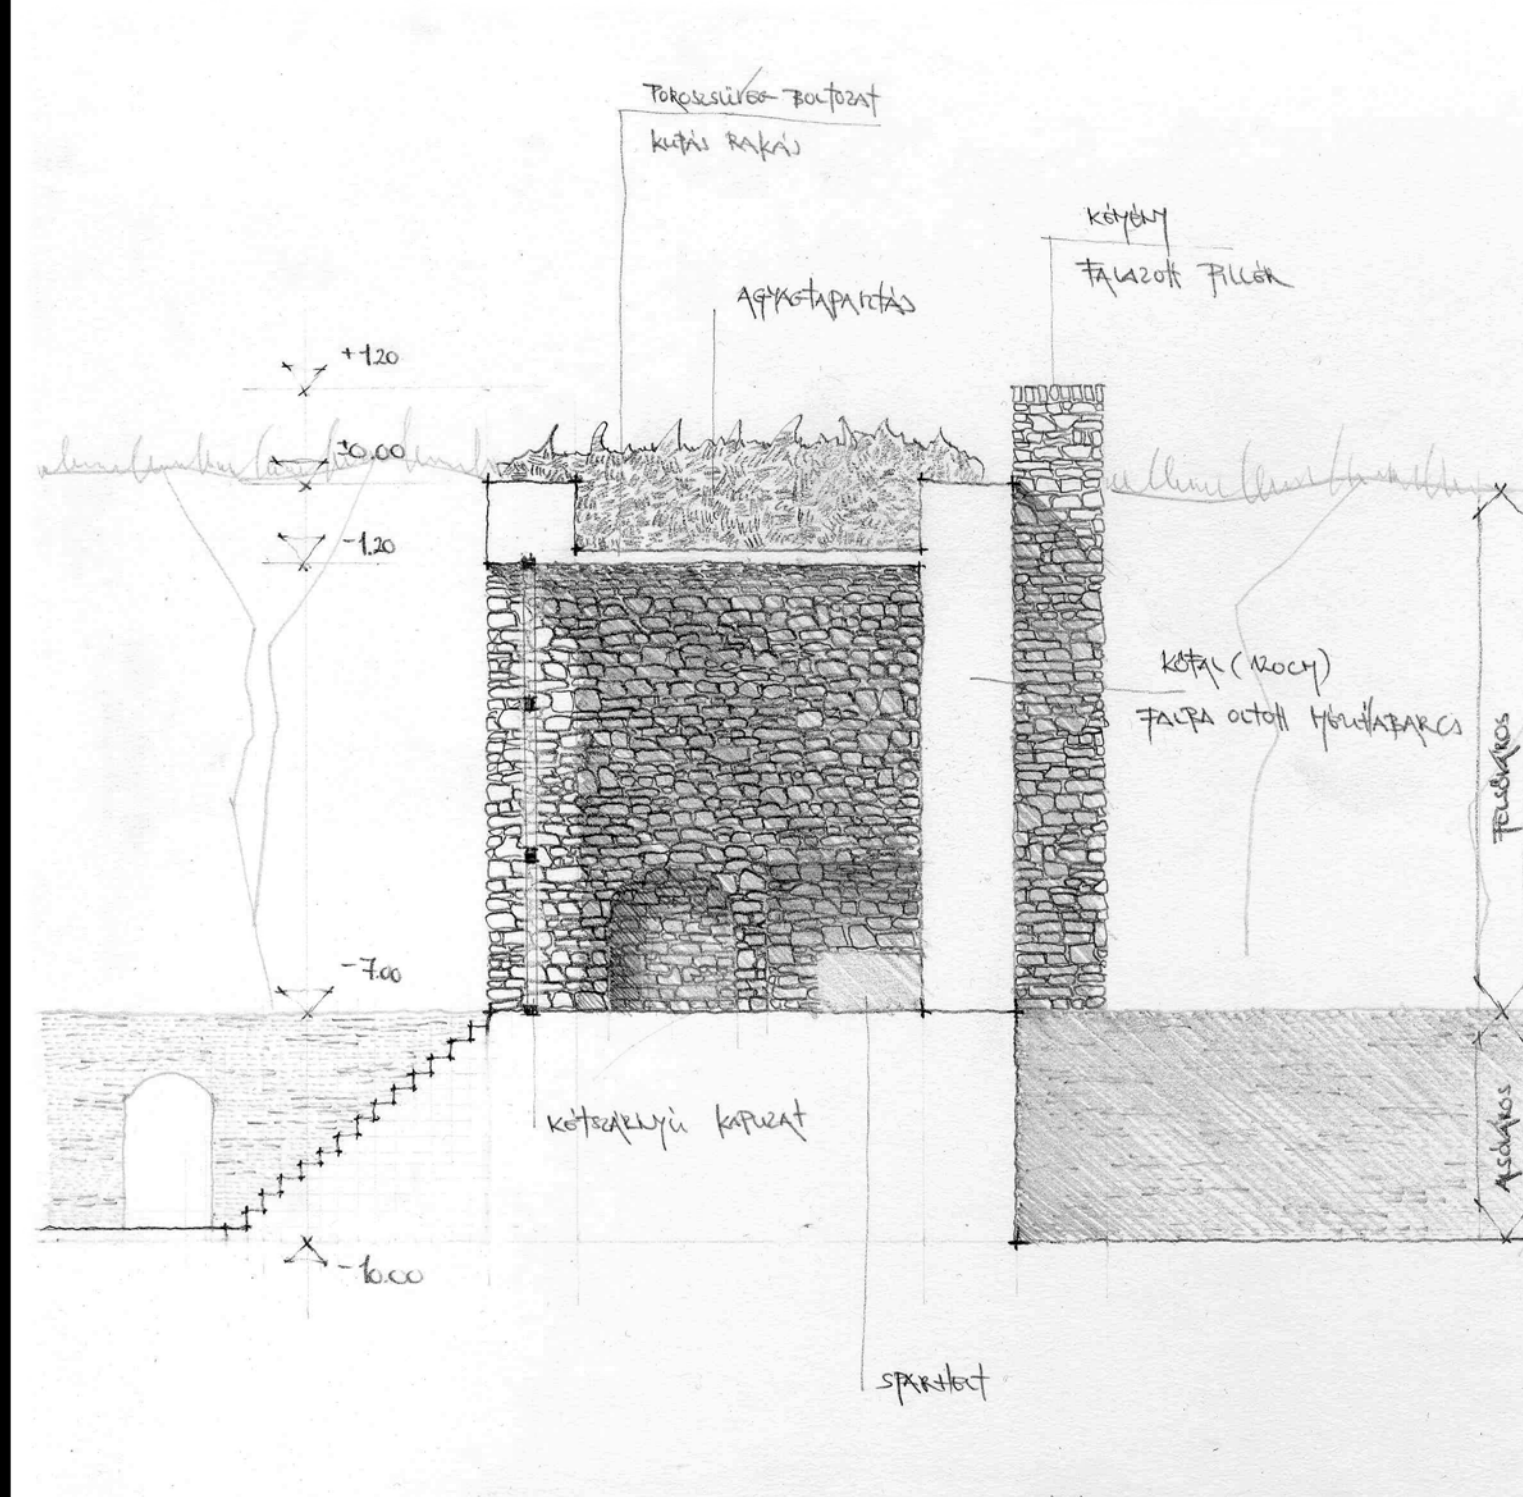 POROSZSÜVEG BOLTOZAT
KUPÁS RAKÁS
KÉMÉNY
FALAZOTT PILLÉR
AGYAGTAPASZTÁS
+1.20
±0.00
-1.20
KŐFAL (120CM)
FALBA OLTOTT MÉSZHABARCS
FELSŐVÁROS
-7.00
ALSÓVÁROS
KÉTSZÁRNYÚ KAPUZAT
-10.00
SPARHELT